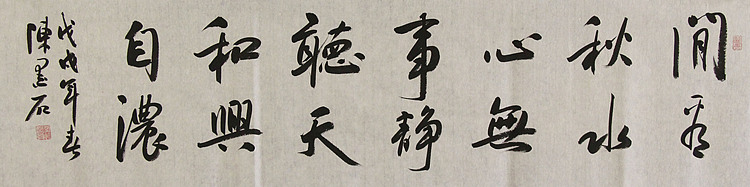 閒看
秋水
心無
事静
聽天
和興
自濃
戊戌年春
陳墨石